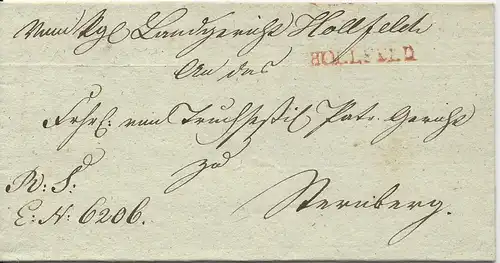 Vom Kgl Landgericht Hollfeld
HOLLFELD
An das
Frhrl: von Truchseßis Patr. Gericht
zu
R: S:
Sternberg.
E: N: 6206.